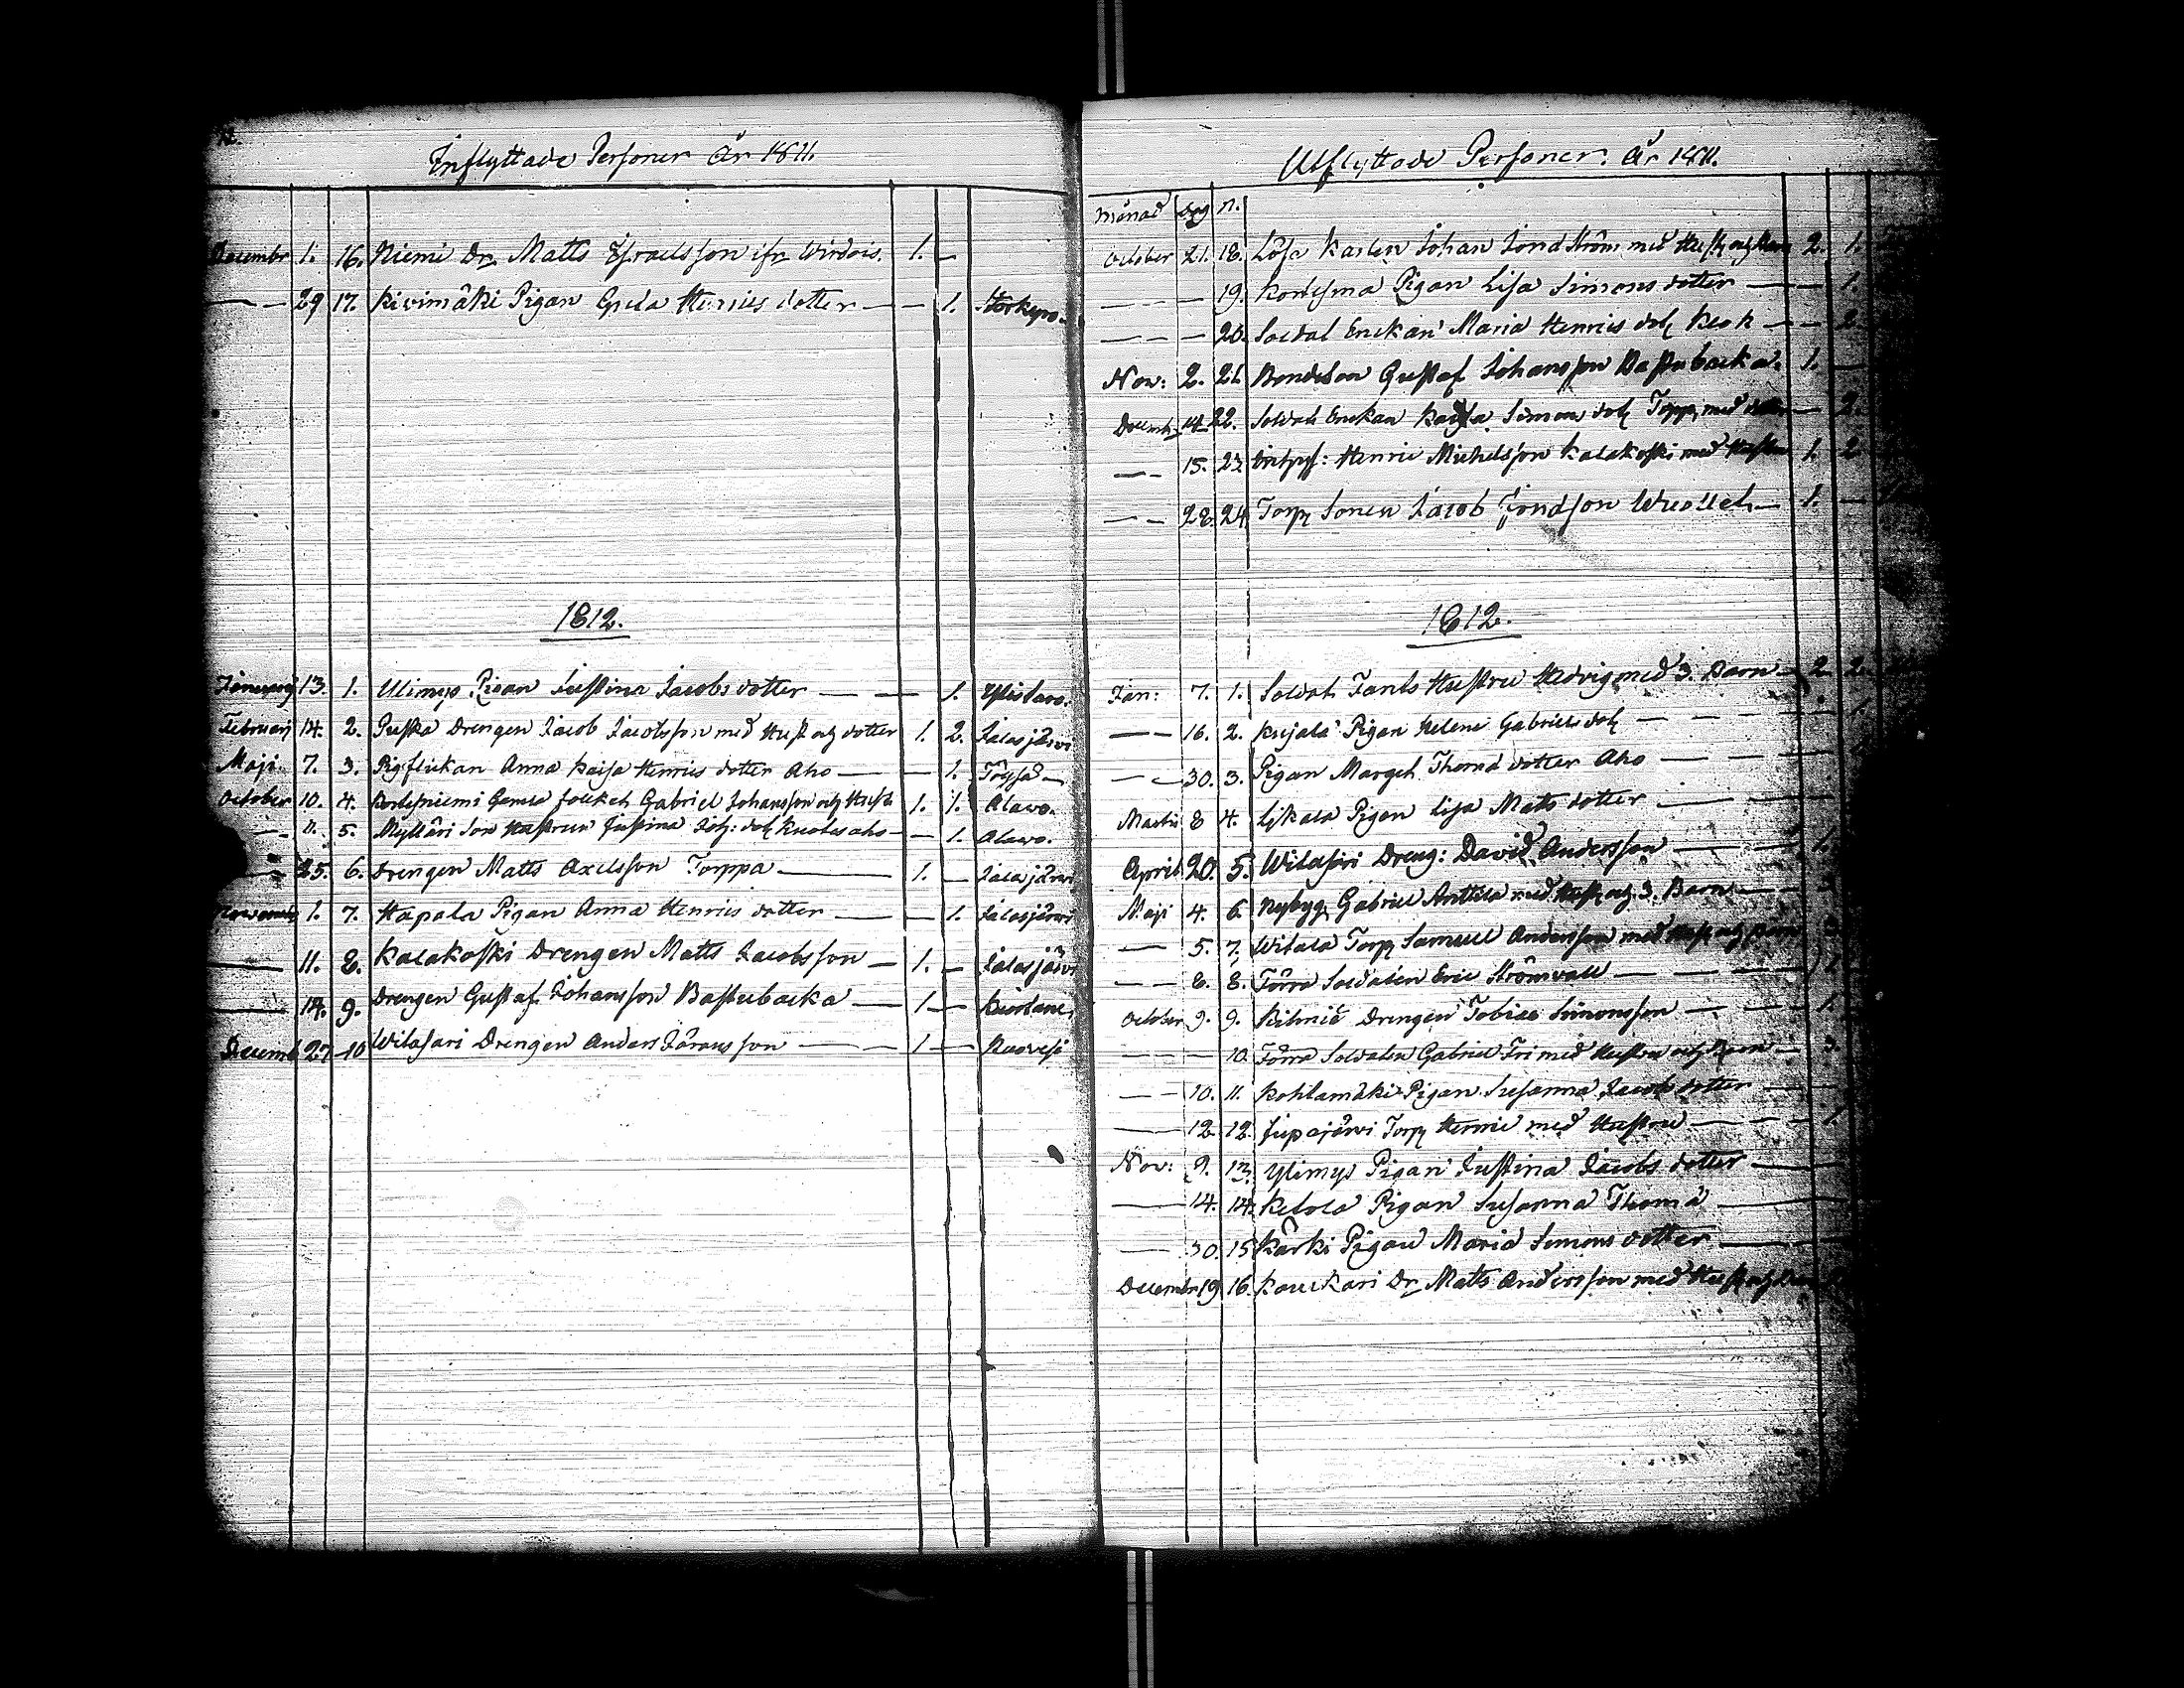 Inflyttade Personer År 1811.
Decembr 1. 16. Niemi Dr Matts Israelsson ifr Wirdois. 1. —
— — 29 17. Kivimäki Pigan Greta Henrics dotter — — 1. Storkyro.
1812.
Januarij 13. 1. Ulimys Pigan Justina Jacobs dotter — — 1. Ylistaro.
Februarij 14. 2. Puska Drengen Jacob Jacobsson med Hust och dotter 1. 2. Jalasjärvi
Maji 7. 3. Pigflickan Anna Kaisa Henrics dotter Aho — — 1. Töysä —
October 10. 4. Kortesniemi Gamla folket Gabriel Johansson och Hust 1. 1. Alavo.
— 11. 5. Mylläri Son Hustrun Justina Joh: dotr Kuotesaho — — 1. Alavo.
— 25. 6. Drengen Matts Axelsson Torppa — 1. — Jalasjärvi
Novemb 1. 7. Hapala Pigan Anna Henrics dotter — — 1. Jalasjärvi
— 11. 8. Kalakoski Drengen Matts Jacobsson — 1. — Jalasjärvi
— 14. 9. Drengen Gustaf Johansson Bastubacka — 1 — Kuortane
Decemb 27 10 Wilasari Drengen Anders Göransson — — 1 — Ruovesi
Utflyttade Personer. År 1811.
månad dag n.
October 21. 18. Lösa Karlen Johan Lindström med Hust och Barn 2. 1.
— — — 19. Kortesma Pigan Lisa Simons dotter — — 1.
— — — 20. Soldat Enckan Maria Henrics dotr Klok — — 2.
Nov: 2. 21. Bondeson Gustaf Johansson Bastubacka. 1. —
Decemb 14 22. Soldats Enckan Kaisa Simons dotr Topp, med dotter — 2.
— — 15. 23. Henric Michelsson Kalakoski med Hustru 1. 2
— — 28. 24. Torp Sonen Jacob — 1. —
1812.
Jan: 7. 1. Soldat Fants Hustru Hedvig med 3. Barn — 2. 2.
— — 16. 2. Kujala Pigan Helena Gabriels dotr — — — 1.
— — 30. 3. Pigan Margeth Thomæ dotter Aho — — —
Martii 8 4. Pigan Lisa Matts dotter — —
April 20. 5. Wilasari Dreng: David Andersson — — 1.
Maji 4. 6. Nybyg. Gabriel Anttila med Hust och 3. Barn — — 3
— 5. 7. Witala Torp Samuel Andersson med Hust och Barn 3.
— — 8. 8. Förra Soldaten Eric Strömvall — — — 1.
October 9. 9. Drengen Tobias Simonsson — — — 1.
— — — 10. Förra Soldaten Gabriel Fri med Hustru och Barn — 3.
— — 10. 11. Kohtamäki Pigan Susanna Jacobs dotter —
— 12. 12. Jupajärvi Torp Henric med Hustru — — — 1.
Nov: 9. 13. Ylimys Pigan Justina Jacobs dotter —
— 14. 14. Ketola Pigan Susanna Thomæ —
— 30. 15. Kärki Pigan Maria Simons dotter —
Decembr 19 16. Dr Matts Andersson med Hust och Barn